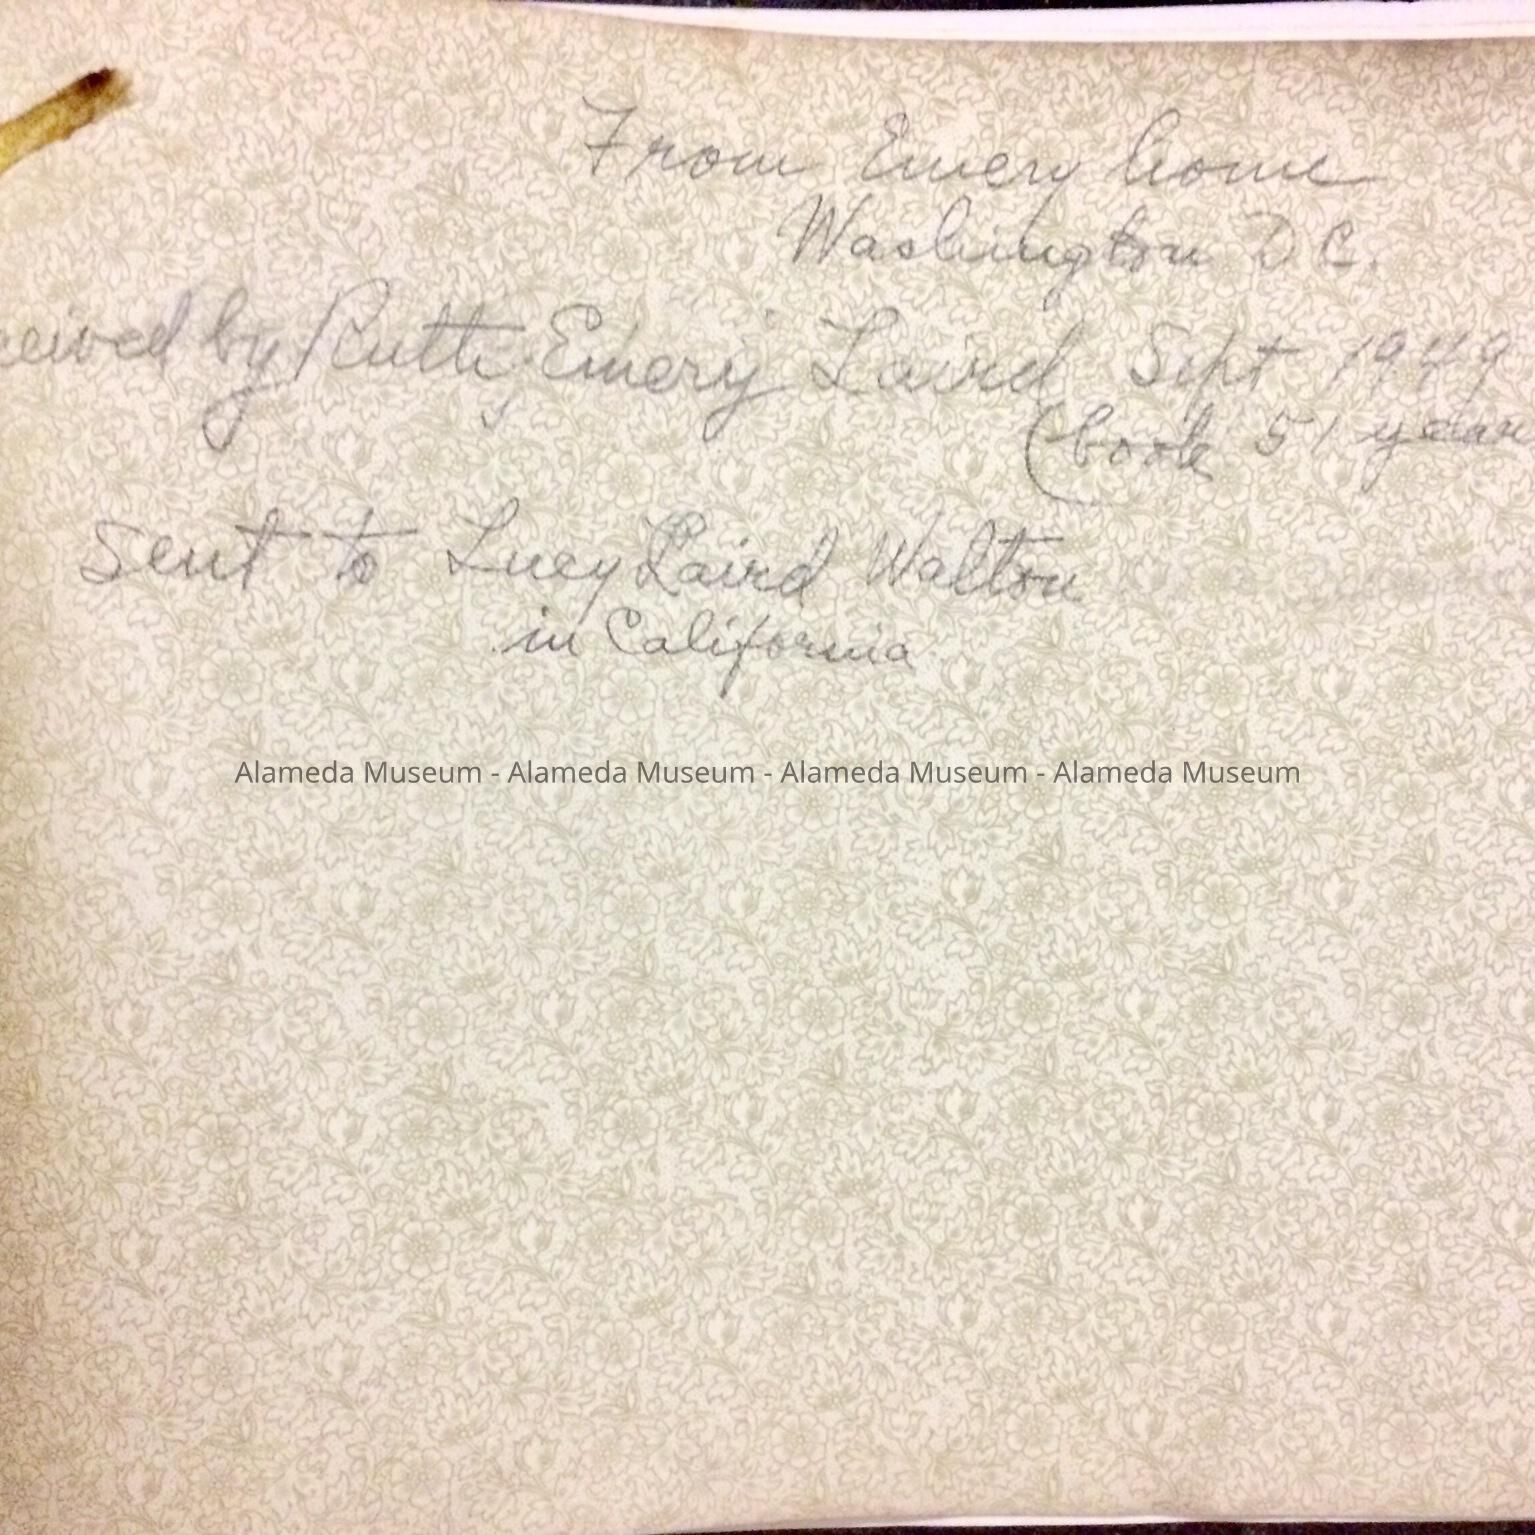 From Emery home
Washington D C.
ceived by Ruth Emery Laird Sept 1949
(book 51 year
sent to Lucy Laird Walton
in California
Alameda Museum - Alameda Museum - Alameda Museum - Alameda Museum